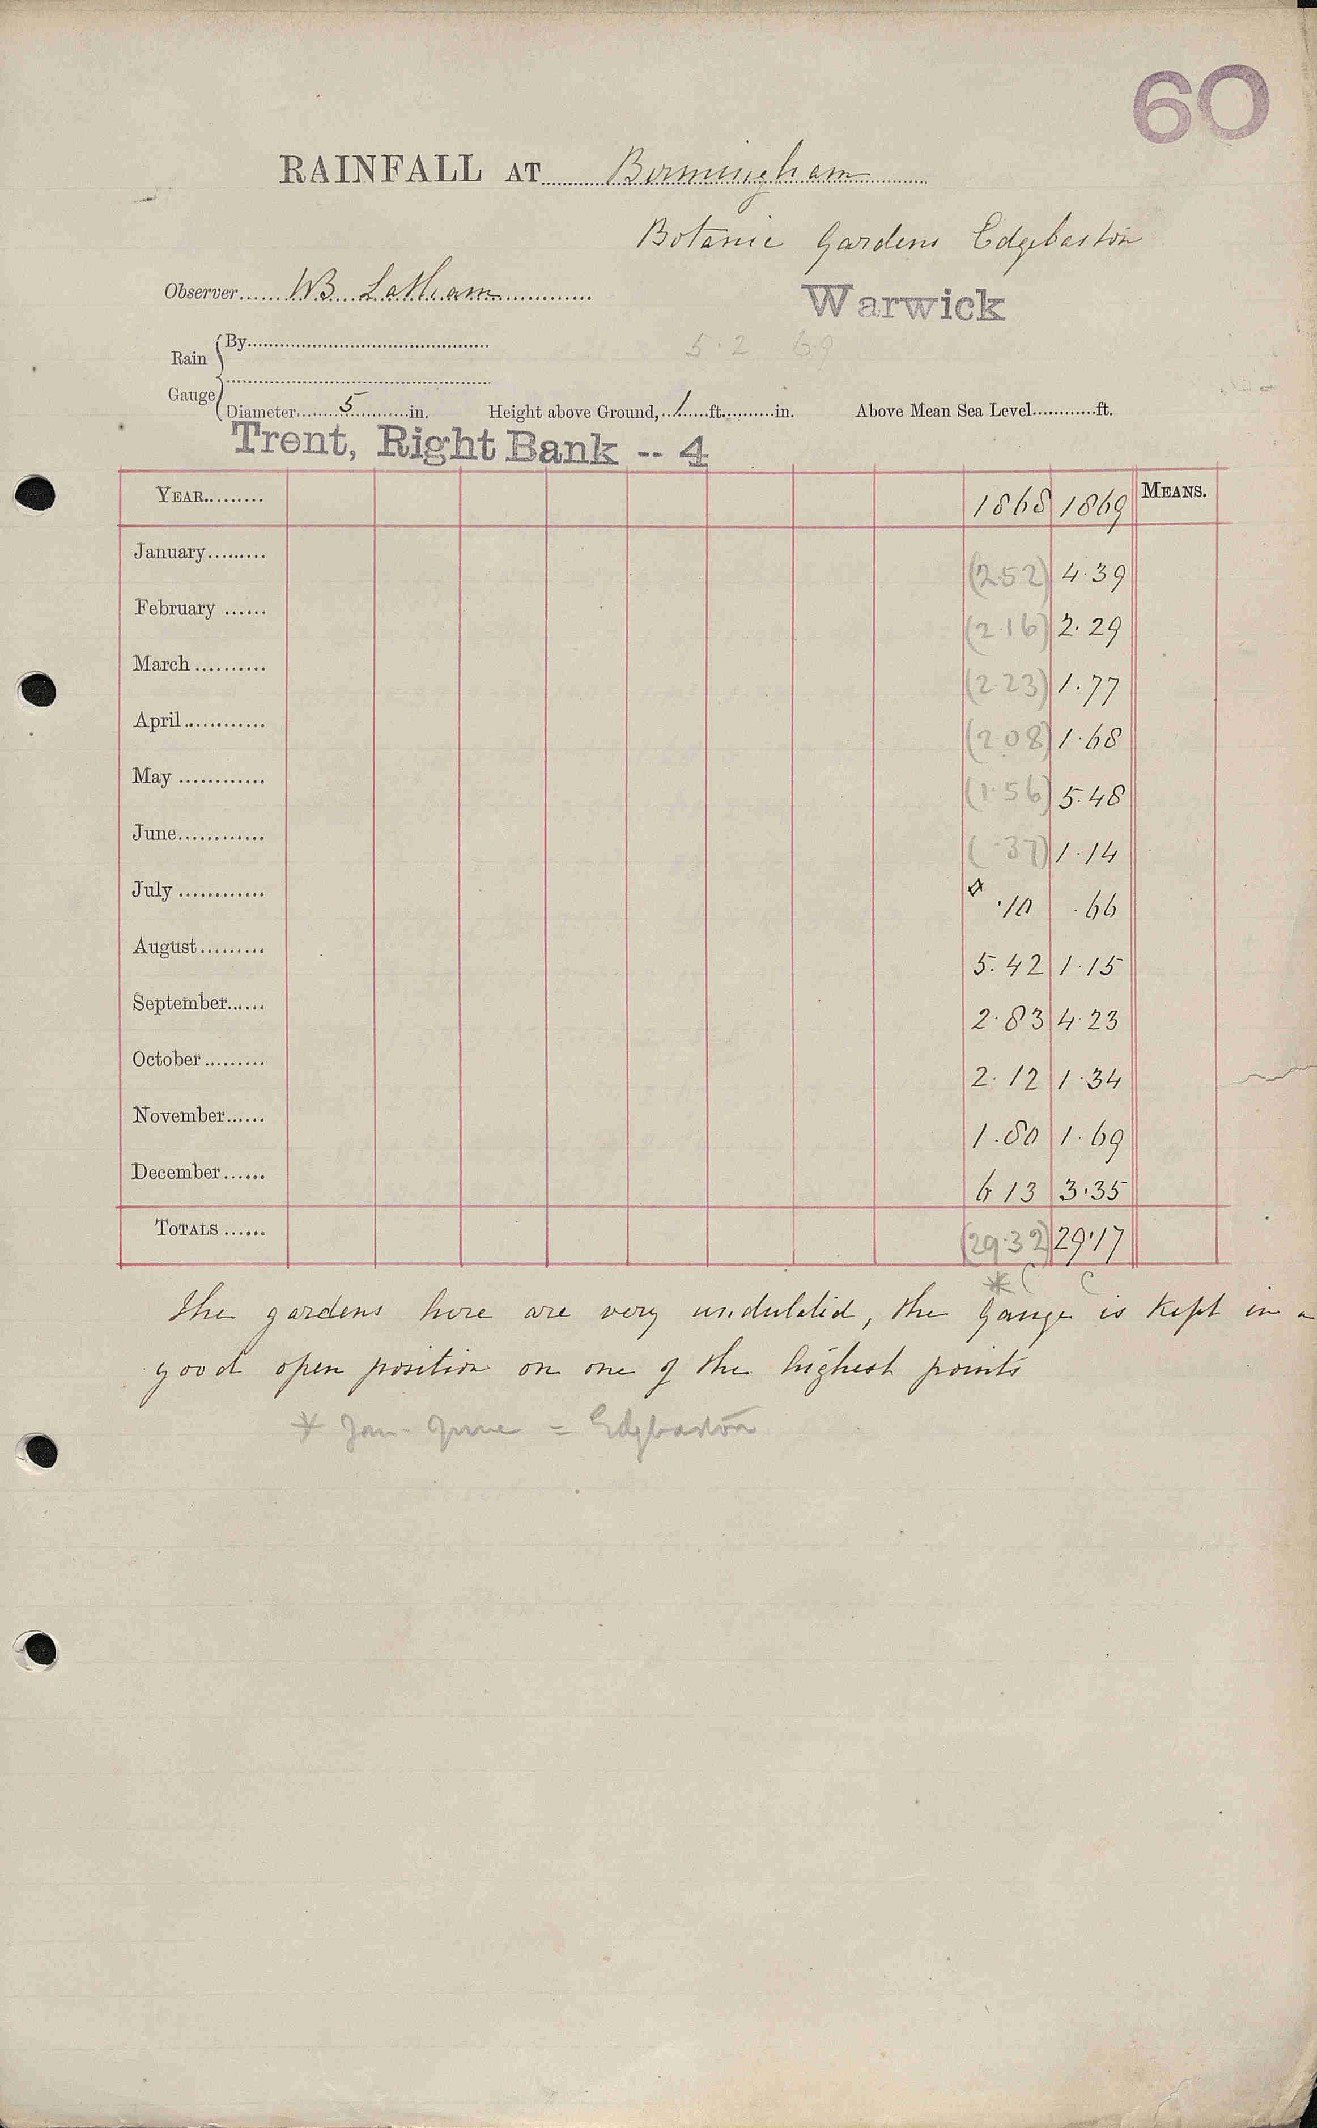 60
RAINFALL AT Birmingham
Botanic Gardens Edgbaston
Observer WB Latham
Warwick
Rain Gauge
By
5.2 69
Diameter 5 in. Height above Ground, 1 ft. in. Above Mean Sea Level ft.
Trent, Right Bank -- 4
YEAR 1868 1869 MEANS.
January (2.52) 4.39
February (2.16) 2.29
March (2.23) 1.77
April (2.08) 1.68
May (1.56) 5.48
June (.37) 1.14
July * .10 .66
August 5.42 1.15
September 2.83 4.23
October 2.12 1.34
November 1.80 1.69
December 6 13 3.35
TOTALS (29.32) 29.17
* C C
The gardens here are very undulated, the Gauge is Kept in a
good open position on one of the highest points
* Jan - June = Edgbaston